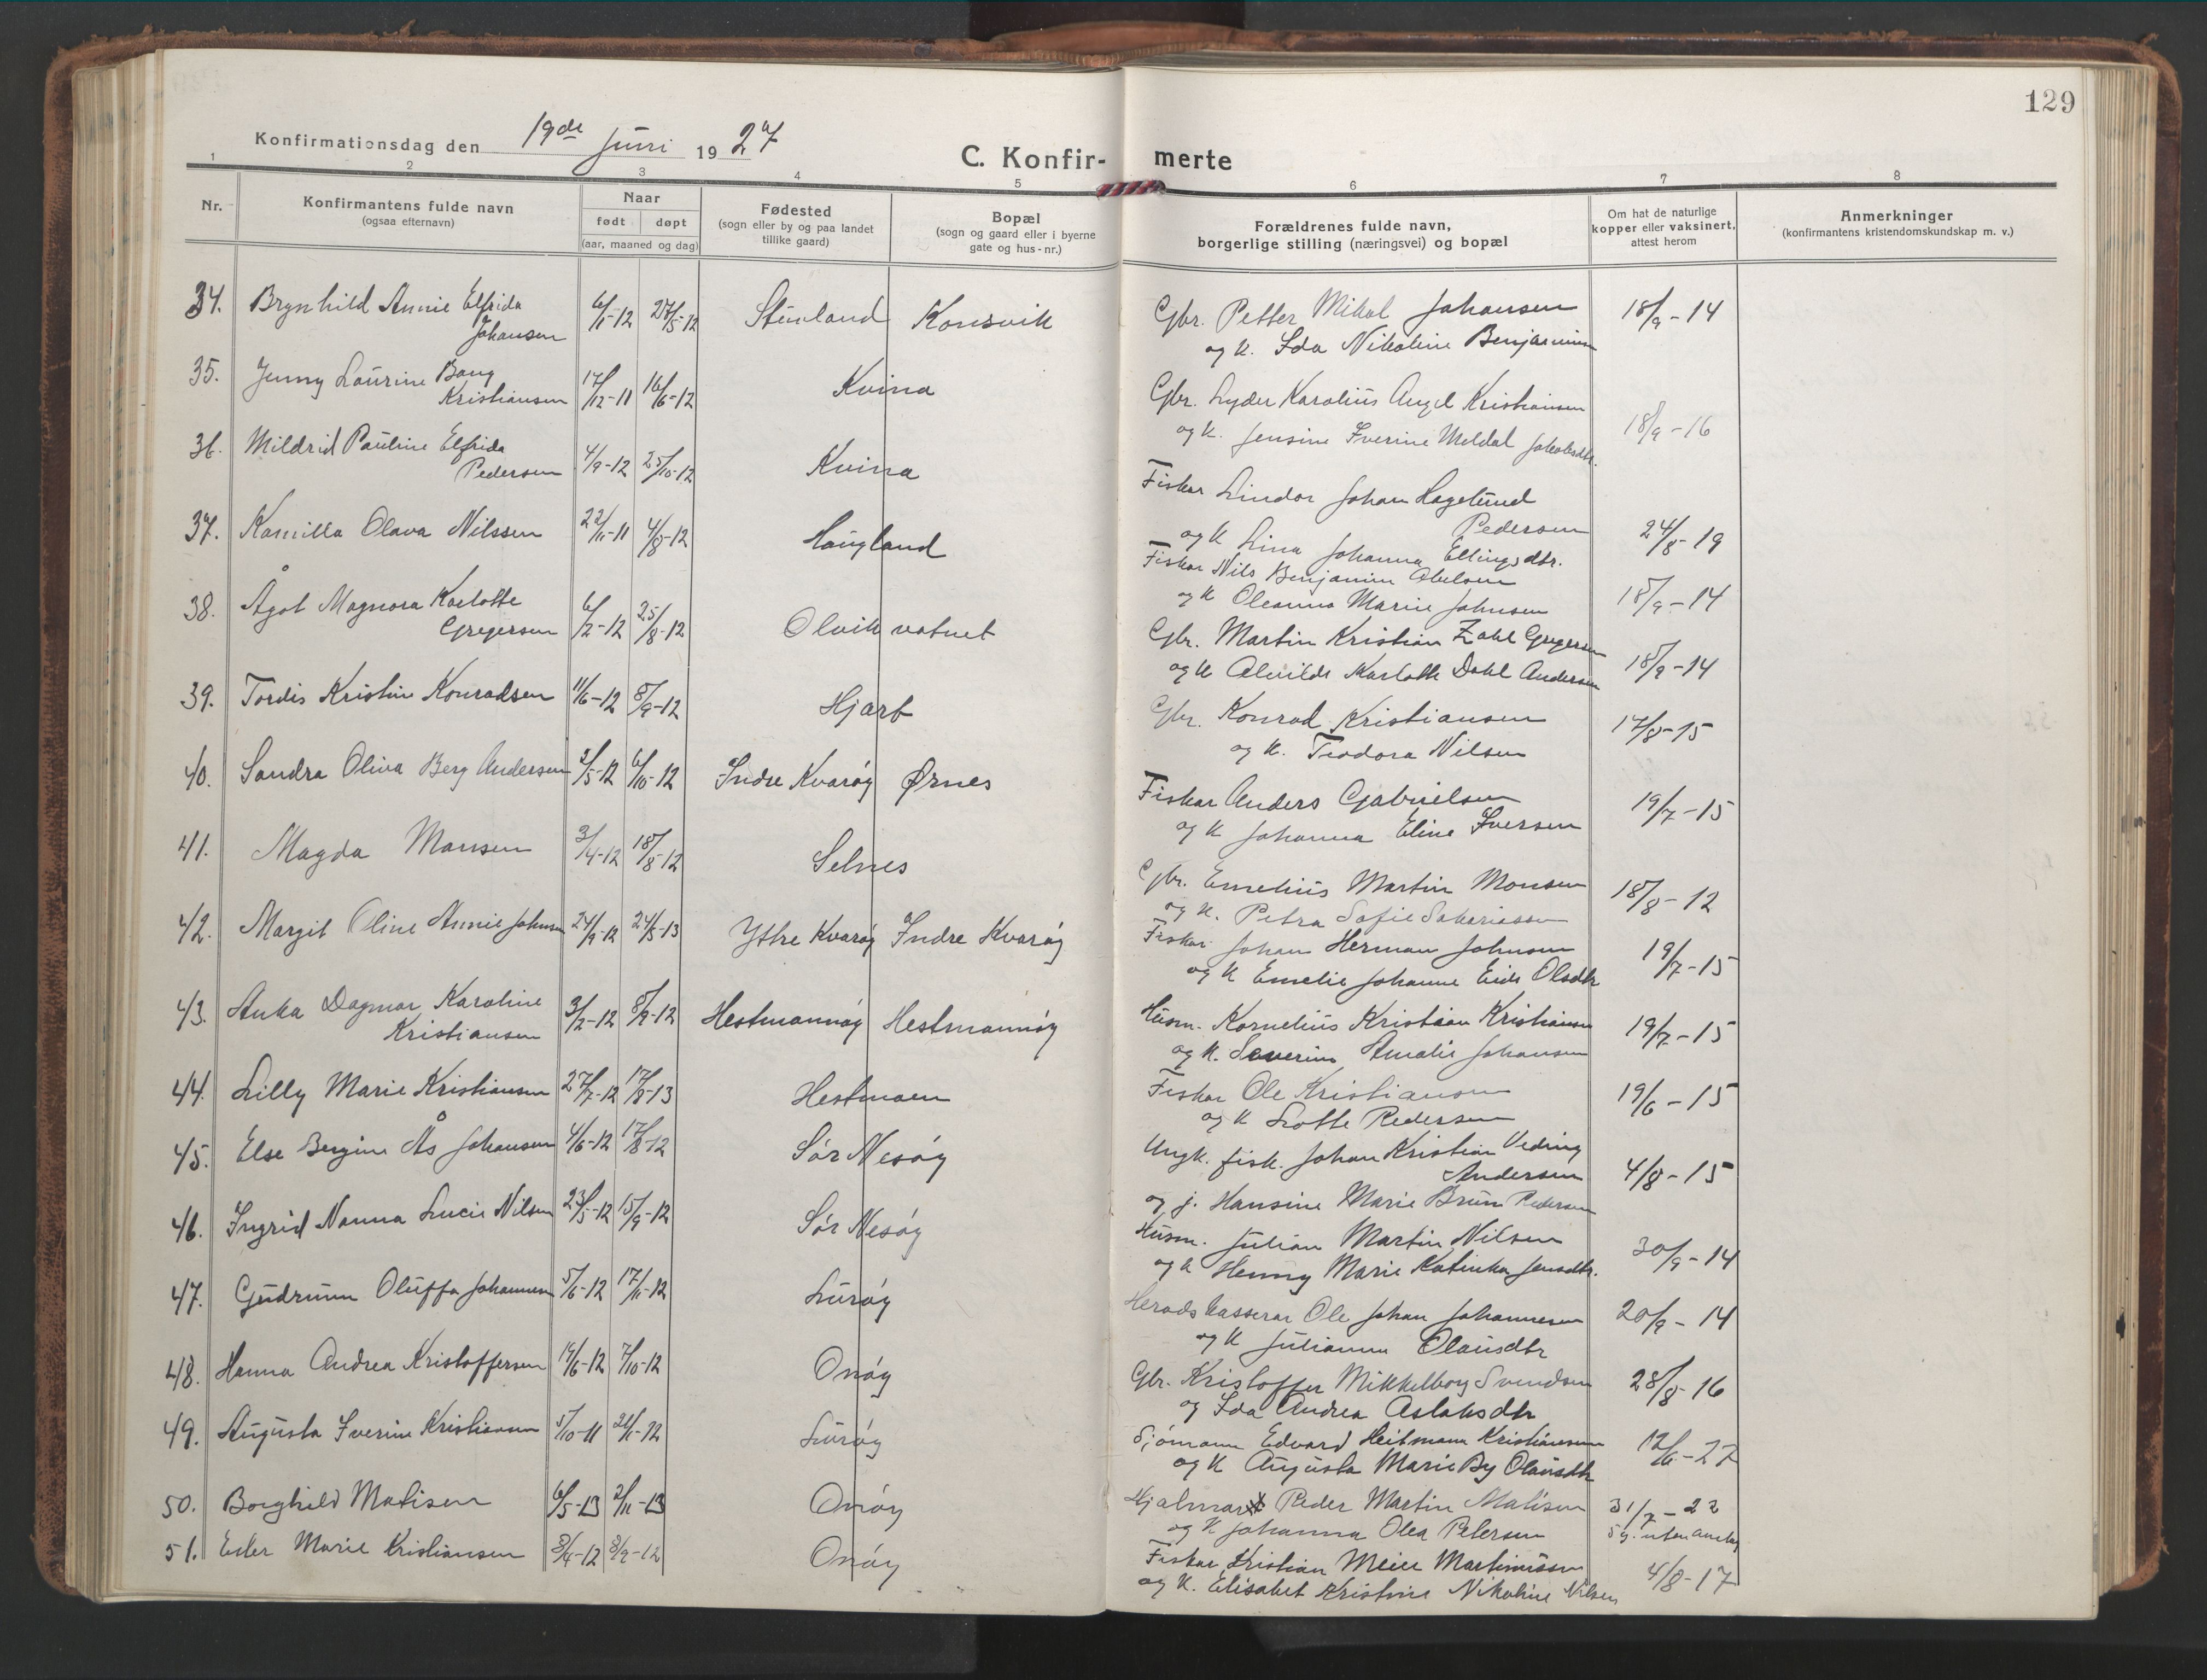 129
Konfirmationsdag den 19de Juni 1927
C. Konfirmerte
1 2 3 4 5 6 7 8
Nr.
Konfirmantens fulde navn
(ogsaa efternavn)
Naar
født døpt
(aar, maaned og dag)
Fødested
(sogn eller by og paa landet
tillike gaard)
Bopæl
(sogn og gaard eller i byerne
gate og hus-nr.)
Forældrenes fulde navn,
borgerlige stilling (næringsvei) og bopæl
Om hat de naturlige
kopper eller vaksinert,
attest herom
Anmerkninger
(konfirmantens kristendomskundskap m. v.)
34. Brynhild Annie Elfrida 6/1-12 27/5-12 Stuvland Konsvik Gbr. Petter Mikal Johansen 18/9-14
Johansen og k. Ida Nikoline Benjaminsen
35. Jenny Laurine Bang 17/12-11 16/6-12 Kvina Gbr. Lyder Karolius Angel Kristiansen 18/9-16
Kristiansen og k. Jensine Iverine Meldal Jakobsdtr.
36. Mildrid Pauline Elfrida 4/9-12 25/10-12 Kvina Fisker Lindor Johan Hagelund
Pedersen Pedersen 24/8-19
og k Lina Johanna Ellingsdtr.
37. Kamilla Olava Nilssen 22/11-11 4/8-12 Haugland Fisker Nils Benjamin Abelsen 18/9-14
og k Oleanna Marie Johnsen
38. Ågot Magnora Karlotte 6/2-12 25/8-12 Olvikvatnet Gbr. Martin Kristian Zahl Gregersen 18/9-14
Gregersen og k Alvilde Karlotte Dahl Andersen
39. Tordis Kristin Konradsen 11/6-12 8/9-12 Hjart Gbr. Konrad Kristiansen 17/8-15
og k. Teodora Nilsen
40. Sandra Oliva Berg Andersen 2/5-12 6/10-12 Indre Kvarøy Ørnes Fisker Anders Gabrielsen 19/7-15
og k Johanna Eline Iversen
41. Magda Monsen 3/4-12 18/8-12 Selnes Gbr. Emelius Martin Monsen 18/8-12
og k. Petra Sofie Sakariassen
42. Margit Oline Annie Johnsen 24/9-12 24/3-13 Ytre Kvarøy Indre Kvarøy Fisker Johan Herman Johnsen 19/7-15
og k Emelie Johanne Eids Olsdtr
43. Anka Dagmar Karoline 3/2-12 8/9-12 Hestmannøy Hestmannøy Husm. Kornelius Kristian Kristiansen 19/7-15
Kristiansen og k. Severine Amalie Johansen
44. Lilly Marie Kristiansen 27/7-12 17/8-13 Hestmoen Fisker Ole Kristiansen 19/6-15
og k Lotte Pedersen
45. Else Bergine Ås Johansen 4/6-12 17/8-12 Sør Nesøy Ungk. fisk. Johan Kristian Veding
Andersen 4/8-15
og j. Hansine Marie Brun Pedersen
46. Ingrid Nanna Lucie Nilsen 23/5-12 15/9-12 Sør Nesøy Husm. Julian Martin Nilsen 30/9-14
og k Henny Marie Katinka Jensdtr.
47. Gudrunn Oluffa Johannesen 5/6-12 17/11-12 Lurøy Heradskasserar Ole Johan Johannesen 20/9-14
og k Julianna Olausdtr
48. Hanna Andrea Kristoffersen 14/6-12 7/10-12 Onøy Gbr. Kristoffer Mikkelborg Svendsen 28/8-16
og Ida Andrea Aslaksdtr
49. Augusta Iverine Kristiansen 5/10-11 21/1-12 Lurøy Sjømann Edvard Heitmann Kristiansen 12/6-27
og k Augusta Marie By Olausdtr
50. Borghild Matisen 6/5-13 2/11-13 Onøy Hjalmar Peder Martin Matisen 31/7-22
og k Johanna Olea Petersen uten
51. Ester Marie Kristiansen 8/4-12 8/9-12 Onøy Fisker Kristian Meier Martinussen 4/8-17
og k. Elisabet Kristine Nikoline Nilsen